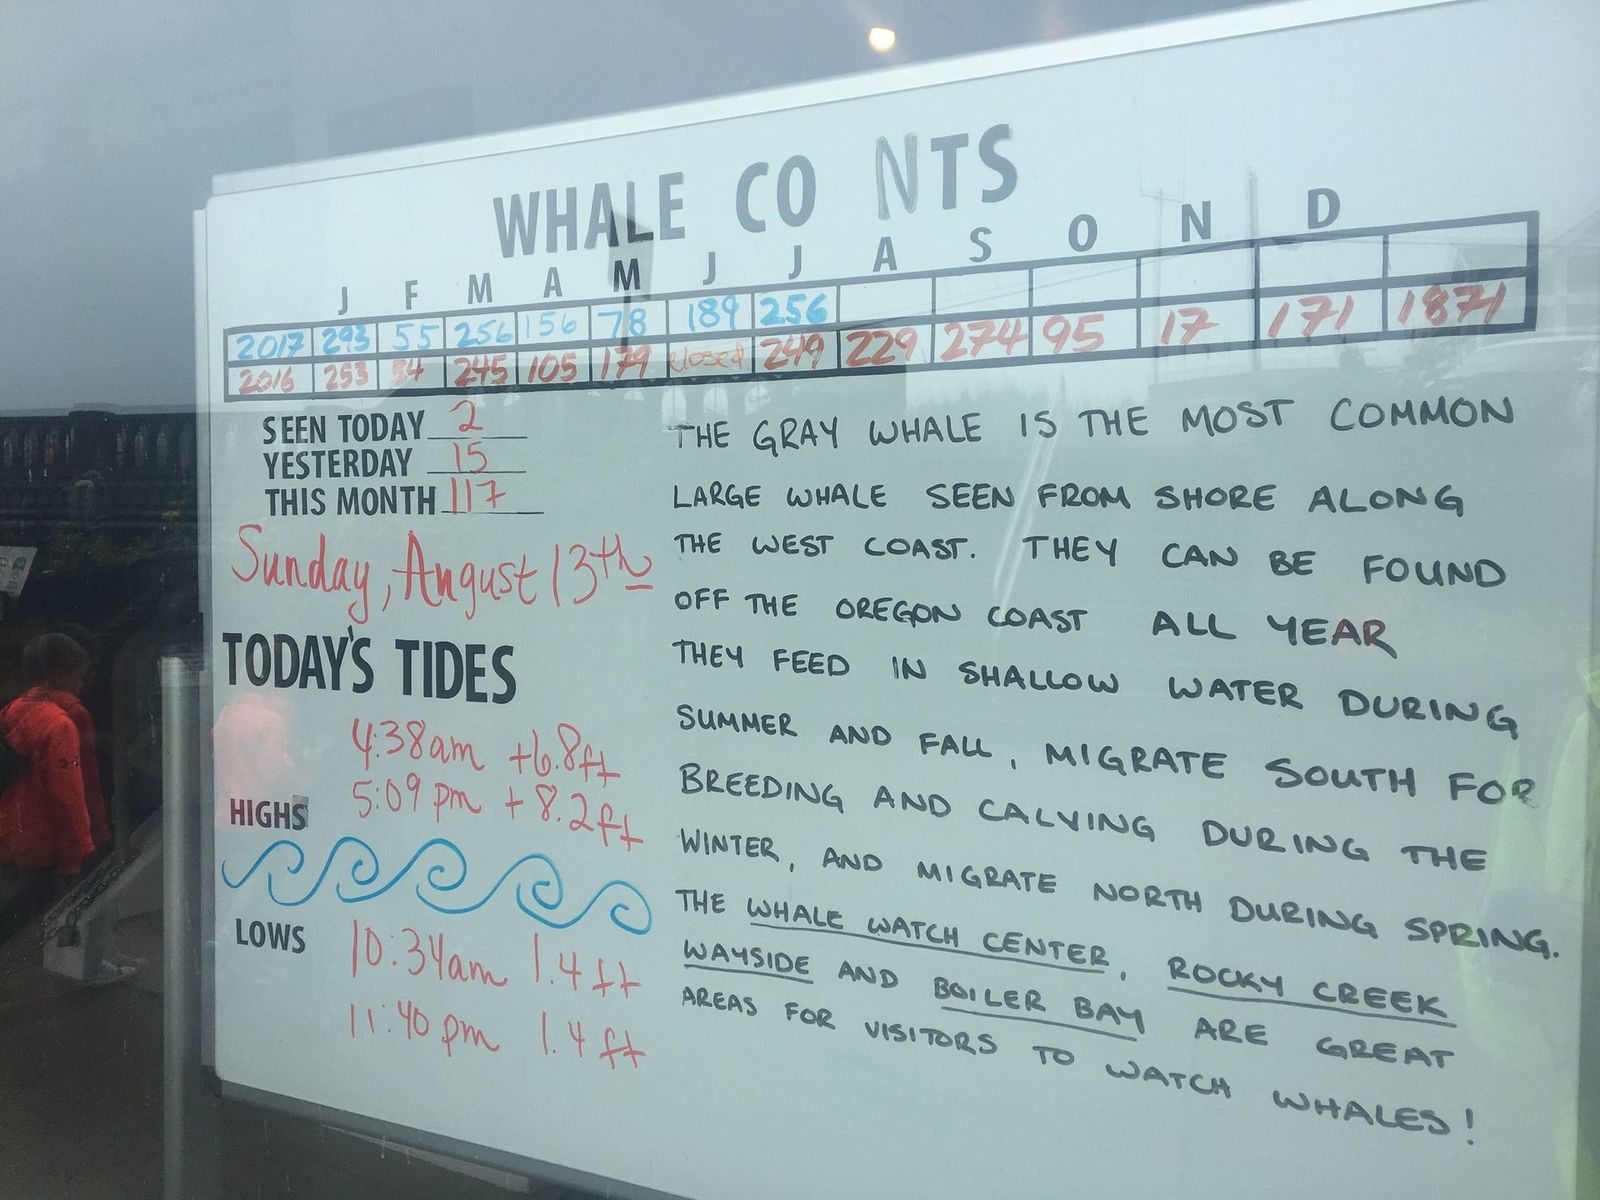 WHALE CO NTS
J F M A M J J A S O N D
2017 293 55 256 156 78 189 256
2016 253 54 245 105 179 closed 249 229 274 95 17 171 1871
SEEN TODAY 2
YESTERDAY 15
THIS MONTH 117
Sunday, August 13th
TODAY'S TIDES
4:38am +6.8ft
5:09pm +8.2ft
HIGHS
LOWS
10:34am 1.4ft
11:40pm 1.4ft
THE GRAY WHALE IS THE MOST COMMON
LARGE WHALE SEEN FROM SHORE ALONG
THE WEST COAST. THEY CAN BE FOUND
OFF THE OREGON COAST ALL YEAR
THEY FEED IN SHALLOW WATER DURING
SUMMER AND FALL, MIGRATE SOUTH FOR
BREEDING AND CALVING DURING THE
WINTER, AND MIGRATE NORTH DURING SPRING.
THE WHALE WATCH CENTER, ROCKY CREEK
WAYSIDE AND BOILER BAY ARE GREAT
AREAS FOR VISITORS TO WATCH WHALES!